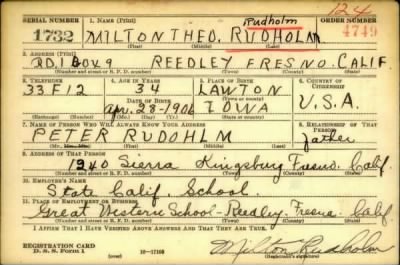 124
SERIAL NUMBER 1. NAME (Print) Rudholm ORDER NUMBER
1732 MILTON THEO. RUDHOLM 4749
(First) (Middle) (Last)
2. ADDRESS (Print)
RD. 1 BOX 9 REEDLEY FRESNO. CALIF.
(Number and street or R. F. D. number) (Town) (County) (State)
3. TELEPHONE 4. AGE IN YEARS 5. PLACE OF BIRTH 6. COUNTRY OF CITIZENSHIP
33F12 34 LAWTON
DATE OF BIRTH (Town or county) U.S.A.
Apr. 28-1906 IOWA
(Mo.) (Day) (Yr.) (State or country)
7. NAME OF PERSON WHO WILL ALWAYS KNOW YOUR ADDRESS 8. RELATIONSHIP OF THAT PERSON
PETER RUDOHLM father
(Mr., Mrs., Miss) (First) (Middle) (Last)
9. ADDRESS OF THAT PERSON
1240 Sierra Kingsburg Fresno. Calif.
(Number and street or R. F. D. number) (Town) (County) (State)
10. EMPLOYER'S NAME
State Calif. School.
11. PLACE OF EMPLOYMENT OR BUSINESS
Great Western School-Reedley, Fresno Calif
(Number and street or R. F. D. number) (Town) (County) (State)
I AFFIRM THAT I HAVE VERIFIED ABOVE ANSWERS AND THAT THEY ARE TRUE.
REGISTRATION CARD
D. S. S. Form 1 16-17105 Milton Rudholm